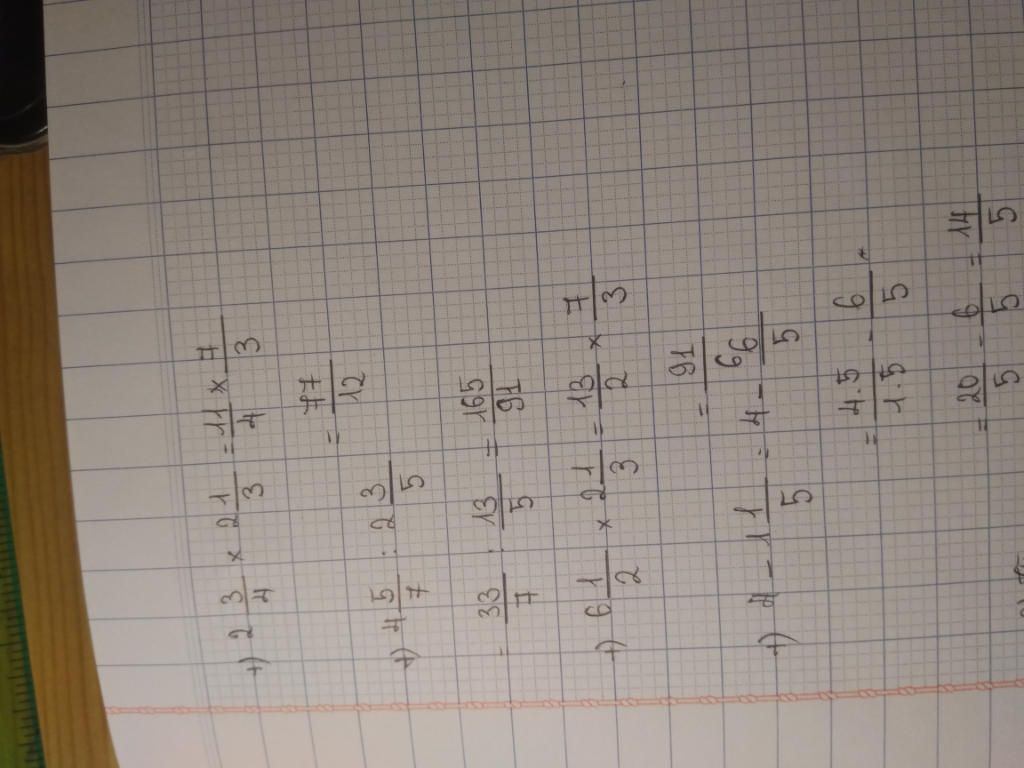 +) 2 3/4 x 2 1/3 = 11/4 x 7/3
= 77/12
+) 4 5/7 : 2 3/5
= 33/7 : 13/5 = 165/91
+) 6 1/2 x 2 1/3 = 13/2 x 7/3
= 91/6
+) 4 - 1 1/5 = 4 - 6/5
= 4.5/1.5 - 6/5
= 20/5 - 6/5 = 14/5